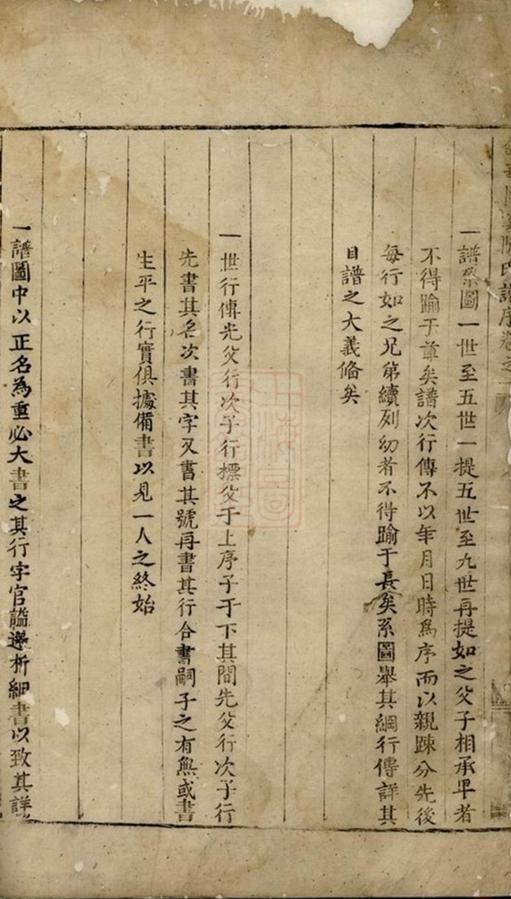 氏譜序卷之
一譜系圖一世至五世一提五世至九世再提如之父子相承卑者
不得踰于尊矣譜次行傳不以年月日時為序而以親踈分先後
每行如之兄弟續列幼者不得踰于長矣系圖舉其綱行傳詳其
目譜之大義俻矣
一世行傳先父行次子行標父于上序子于下其間先父行次子行
先書其名次書其字又書其號再書其行合書嗣子之有無或書
生平之行實俱據備書以見一人之終始
一譜圖中以正名為重必大書之其行字官諡遷析細書以致其詳